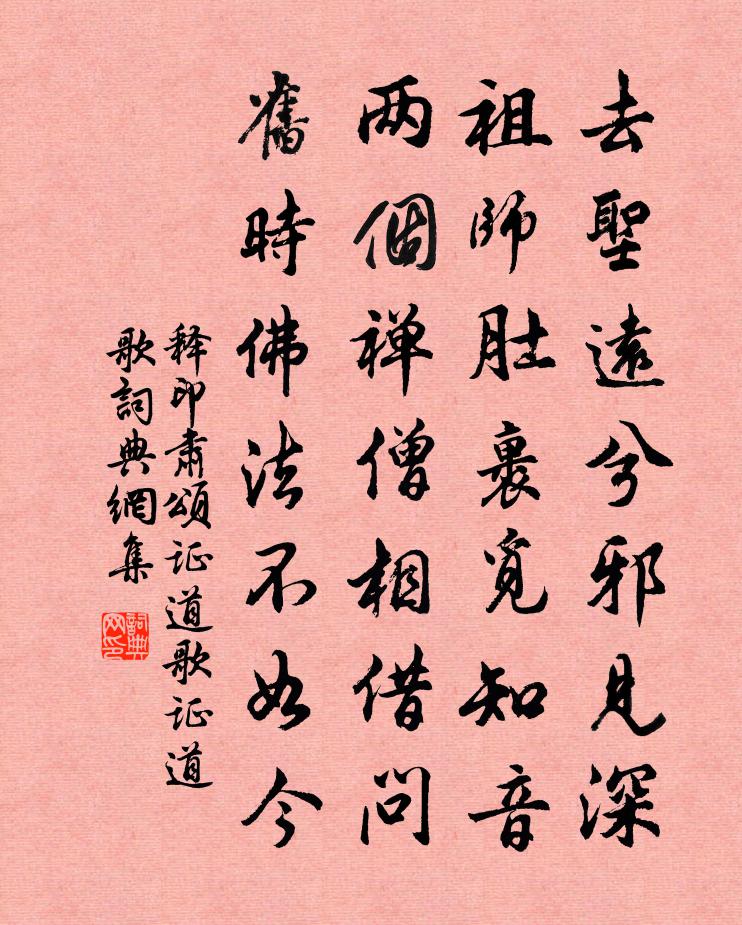 去聖遠兮邪見深
祖師肚裏覓知音
两個禅僧相借問
舊時佛法不如今
释印肃頌证道歌证道
歌詞典網集
詞典
网印